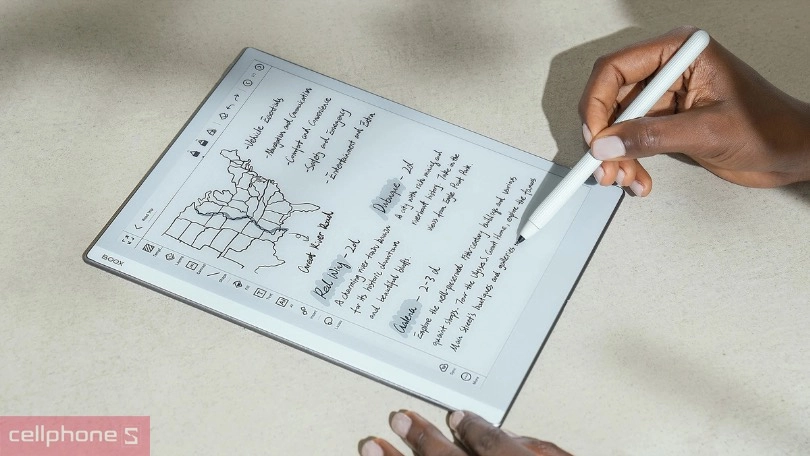 BOOX
-Vehicle Essentials
-Navigation and Communication
-Comfort and Convenience
-Safety and Emergency
-Entertainment and Extra
Great River Road
Red Wing - 2d
A charming river town known
for its historic architecture
and beautiful bluffs
Dubuque - 2d
A city with rich mining and
riverboat history. Take in the
views from Eagle Point Park
Galena 2-3 d
Explore the well-preserved 19th-century buildings and
quaint shops. Tour the Ulysses S. Grant Home, explore the famous
Main Street's boutiques and galleries
cellphone S